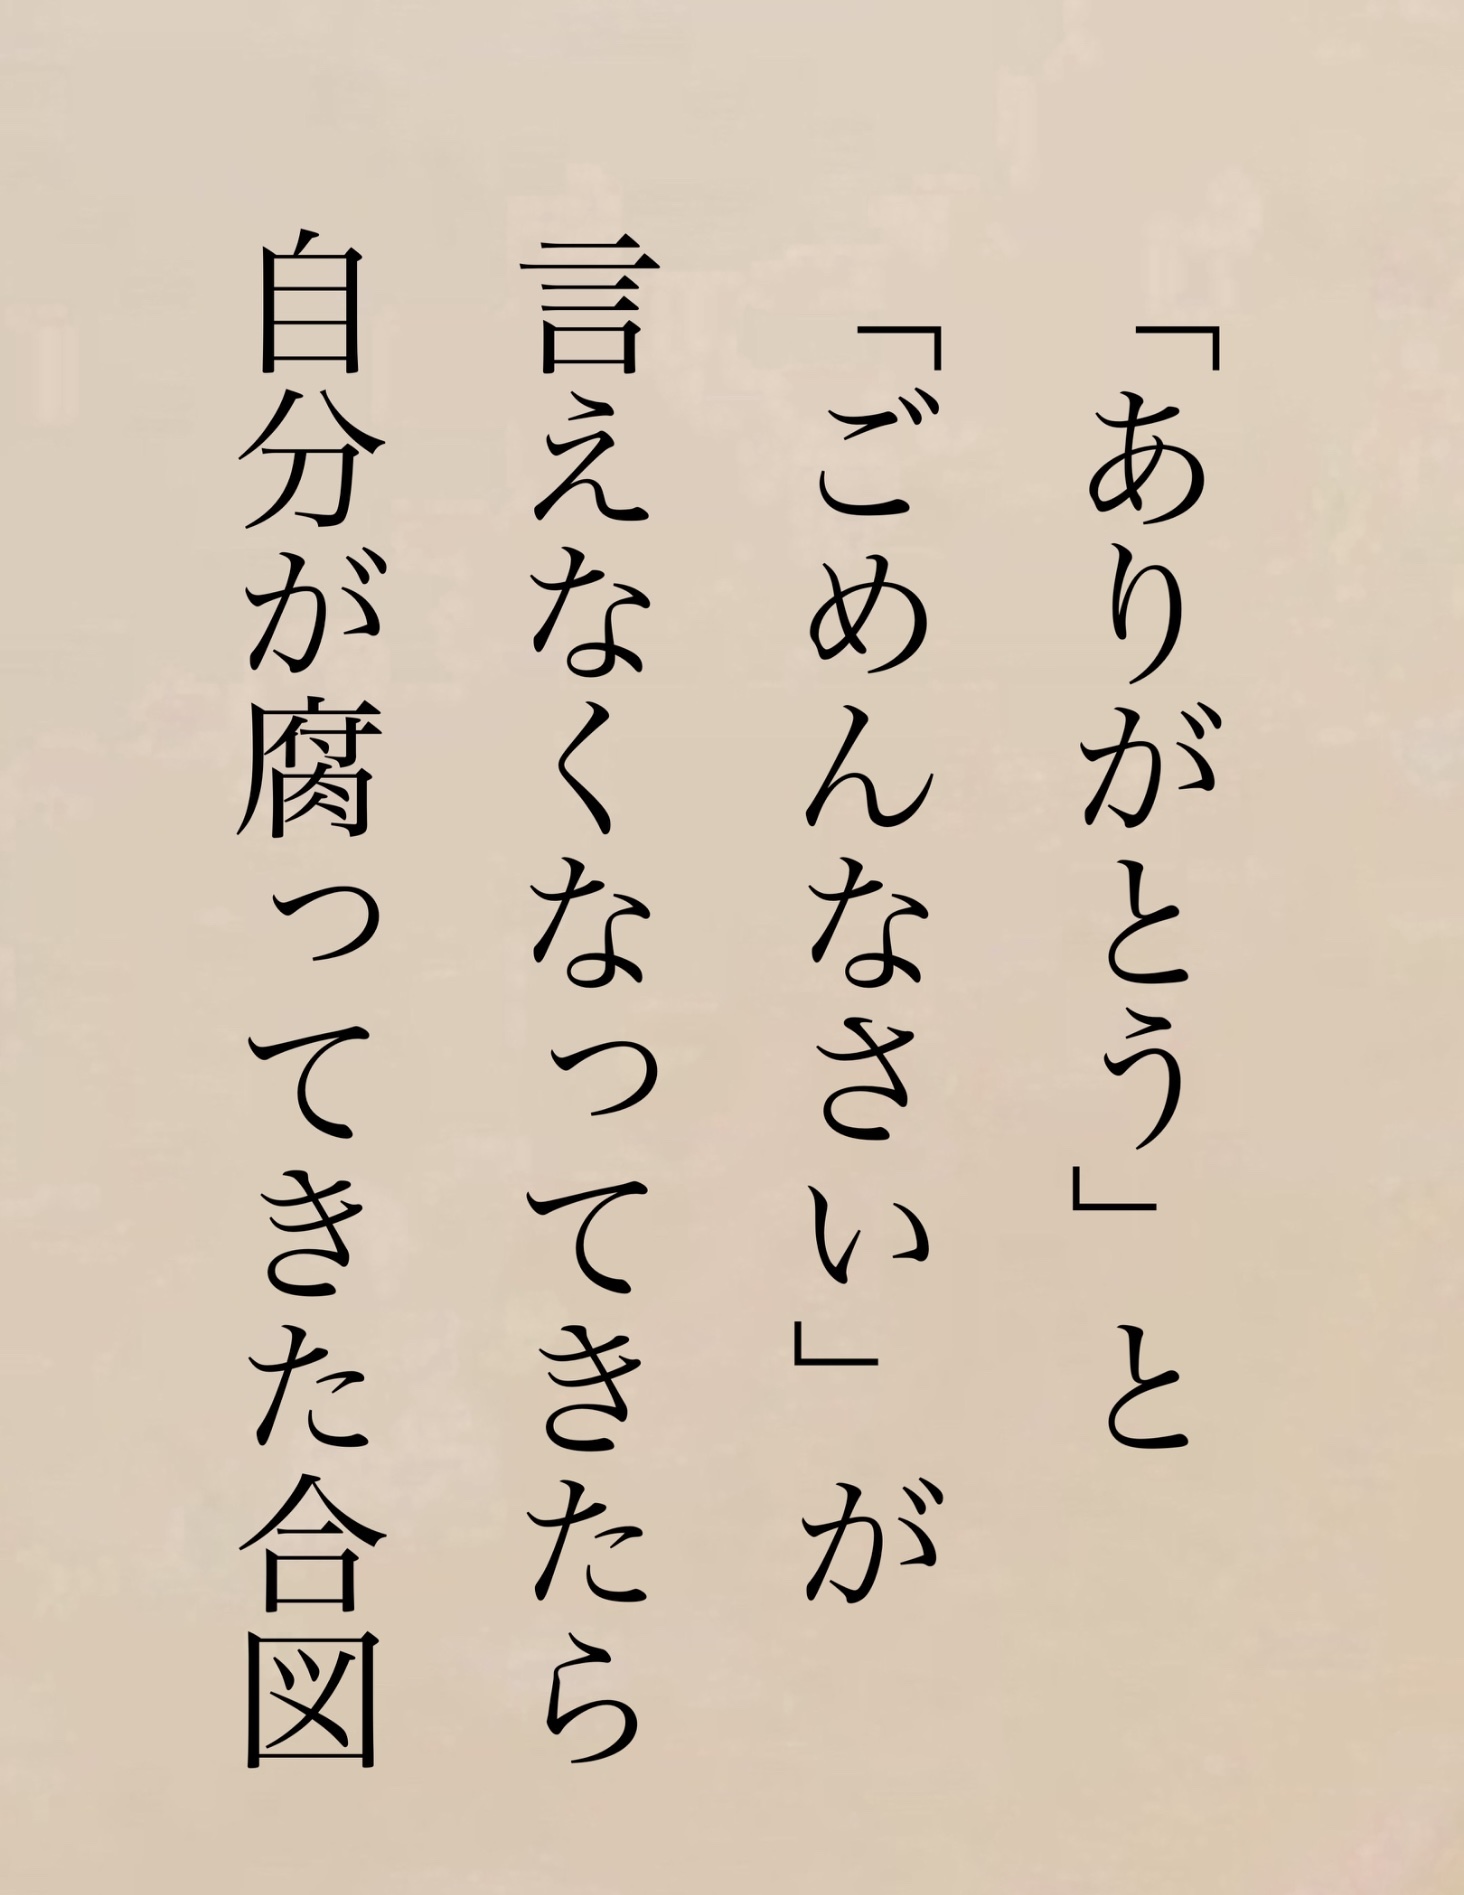 「ありがとう」と
「ごめんなさい」が
言えなくなってきたら
自分が腐ってきた合図